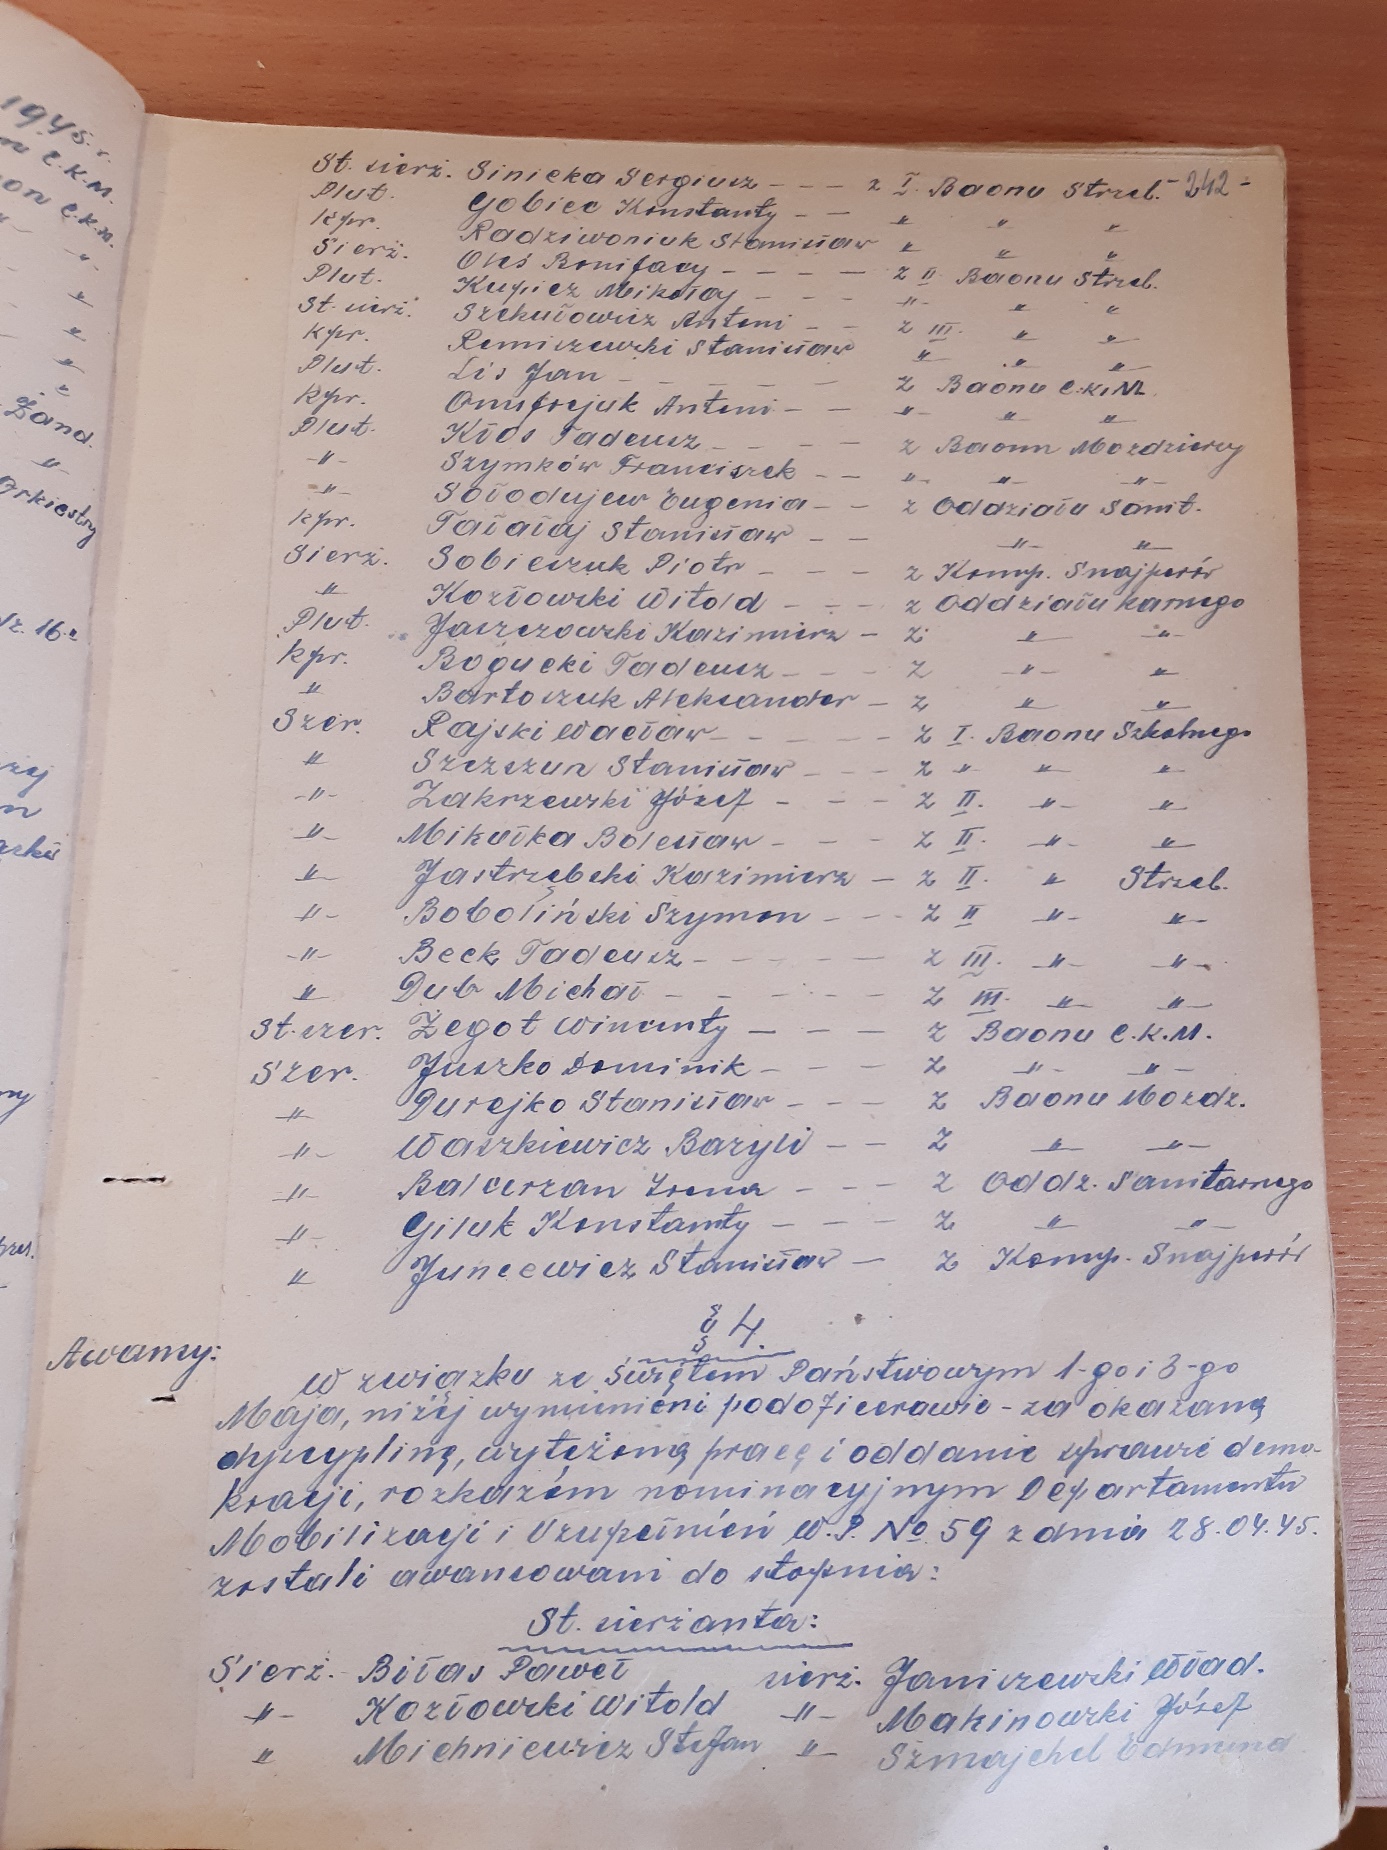 1945. r.
C.K.M.
C.K.M.
Żand.
Orkiestry
St. sierż. Sinicka Sergiusz - - - z I. Baonu Strzel. 242 -
Plut. Gobiec Konstanty - - " " "
Kpr. Radziwoniuk Stanisław " " "
Sierż. Oleś Bonifacy - - - - z II Baonu Strzel.
Plut. Kupicz Mikołaj - - - " " "
St. sierż. Szekułowicz Antoni - - z III. " "
Kpr. Remiszewski Stanisław " " "
Plut. Lis Jan - - - - - z Baonu C.K.M.
Kpr. Onufrejuk Antoni - - " " "
Plut. Kłos Tadeusz - - - - z Baonu Moździerzy
" Szymków Franciszek - - " " "
" Sołodujew Eugenia - - z Oddziału Sanit.
Kpr. Tałałaj Stanisław - - " "
Sierż. Sobieszuk Piotr - - - z Komp. Snajperów
" Kozłowski Witold - - - z Oddziału karnego
Plut. Jaszczowski Kazimierz - z " "
Kpr. Bogucki Tadeusz - - - z " "
" Bartoszuk Aleksander - z " "
Szer. Rajski Wacław - - - - - z I. Baonu Szkolnego
" Szczezun Stanisław - - - z " " "
" Zakrzewski Józef - - - z II. " "
" Mikułka Bolesław - - - z II. " "
" Jastrzębski Kazimierz - z II. " Strzel.
" Boboliński Szymon - - - z II " "
" Beck Tadeusz - - - - - z III. " "
" Dub Michał - - - - - z III. " "
St. szer. Żegot Wincenty - - - z Baonu C.K.M.
Szer. Juszko Dominik - - - z " "
" Durejko Stanisław - - - z Baonu Moździ.
" Waszkiewicz Bazyli - - z " "
" Balcerzan Irena - - - z Oddz. Sanitarnego
" Giluk Konstanty - - - z " "
" Juncewicz Stanisław - z Komp. Snajperów
§ 4.
Awansy:
W związku ze Świętem Państwowym 1-go i 3-go
Maja, niżej wymienieni podoficerowie - za okazaną
dyscyplinę, wytężoną pracę i oddanie sprawie demo-
kracji, rozkazem nominacyjnym Departamentu
Mobilizacji i Uzupełnień W.P. No 59 z dnia 28.04.45.
zostali awansowani do stopnia:
St. sierżanta:
Sierż. Biłas Paweł sierż. Janiszewski Wład.
" Kozłowski Witold " Makinowski Józef
" Michniewicz Stefan " Szmajchel Edmund